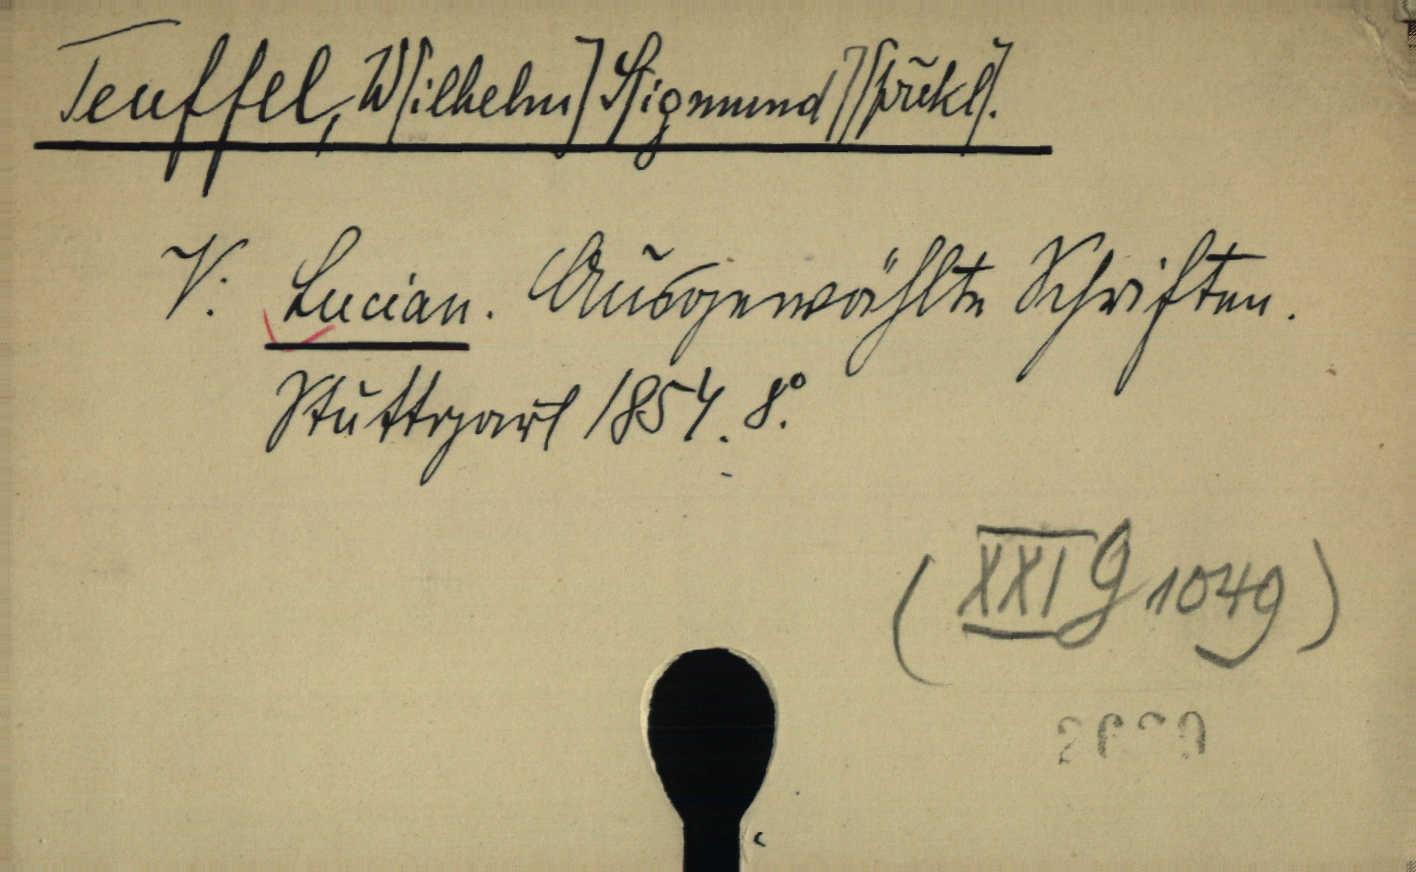 Teuffel, W[ilhelm] S[igmund] [
V: Lucian. Ausgewählte Schriften.
Stuttgart 1854. 8°.
(XXI G 1049)